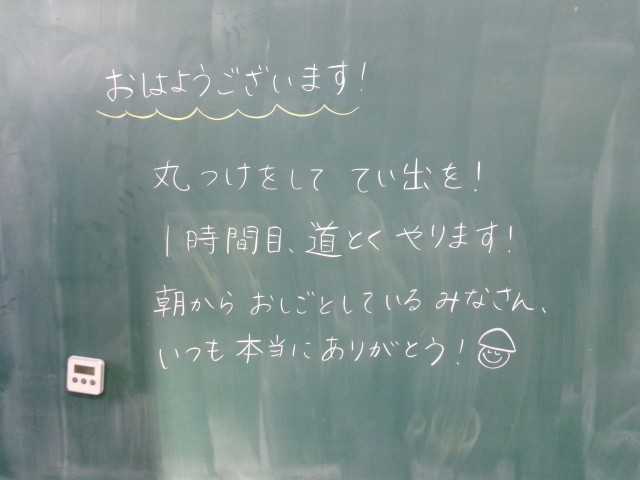 おはようございます!
丸つけをして てい出を!
1時間目、道とく やります!
朝から おしごとしている みなさん、
いつも 本当に ありがとう!